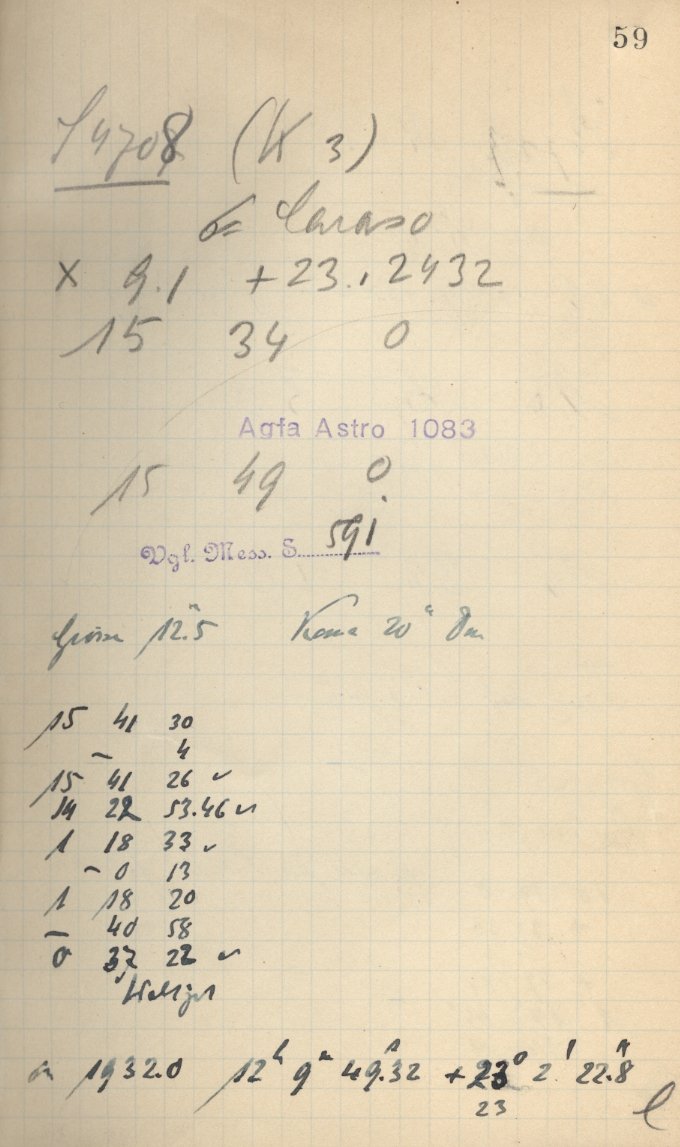 59
S4708 (K 3)
= Caraso
× 9.1 +23.,2432
15 34 0
Agfa Astro 1083
15 49 0
Vgl. Mess. S. 591
Grösse 12.5 Koma 20" Dm
15 41 30
– 4
15 41 26 ✓
14 22 53.46 ✓
1 18 33 ✓
– 0 13
1 18 20
– 40 58
0 37 22 ✓
Weltzeit
1932.0 12ʰ 9ᵐ 49ˢ.32 +23° 2' 22".8
23